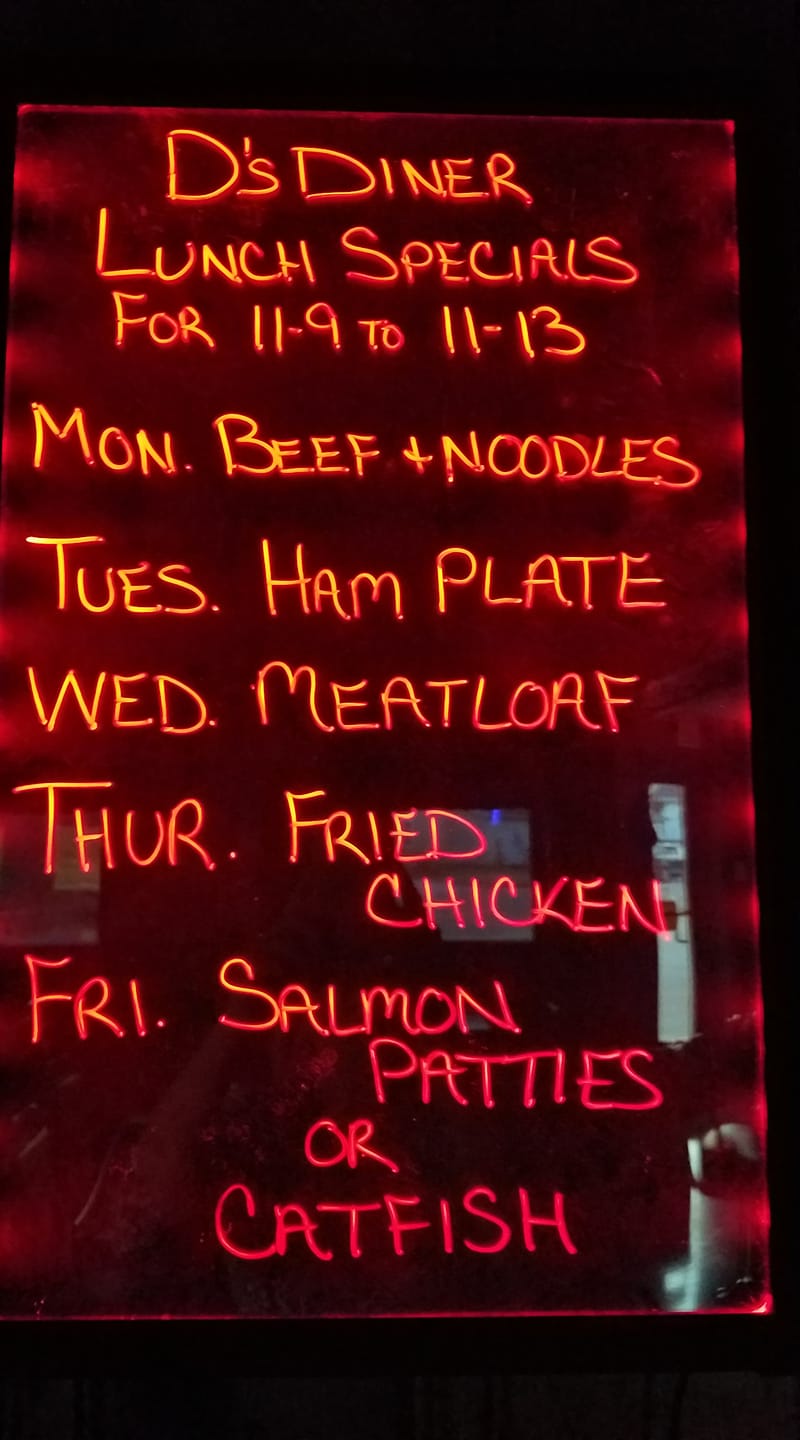 D's DINER
LUNCH SPECIALS
FOR 11-9 TO 11-13
MON. BEEF + NOODLES
TUES. HAM PLATE
WED. MEATLOAF
THUR. FRIED
CHICKEN
FRI. SALMON
PATTIES
OR
CATFISH